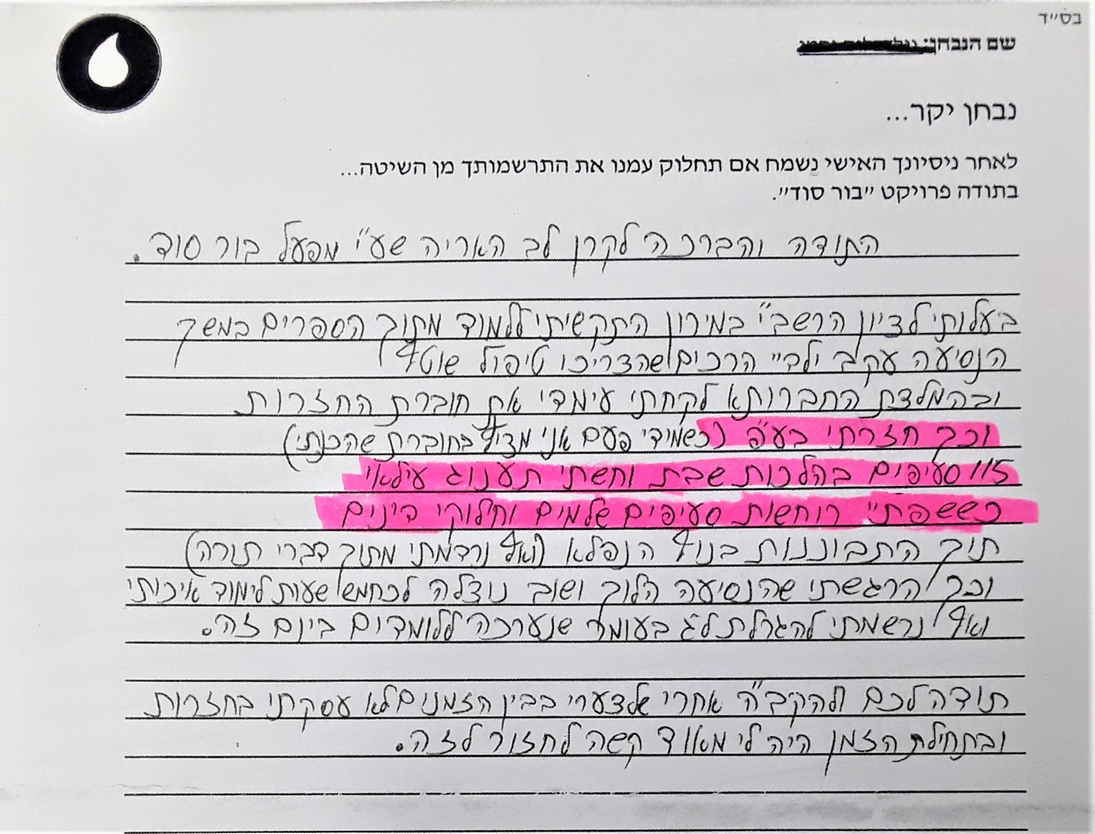 בס״ד
שם הנבחן:
נבחן יקר...
לאחר ניסיונך האישי נשמח אם תחלוק עמנו את התרשמותך מן השיטה...
בתודה פרויקט ״בור סוד״.
התודה והברכה לקרן לב האריה שע״י מפעל בור סוד.
בעלותי לציון הרשב״י במירון התקשיתי ללמוד מתוך הספרים במשך
הנסיעה עקב ילדיי הרכים שהצריכו טיפול שוטף
ובהמלצת החברותא לקחתי עימדי את חוברת החזרות
וכך חזרתי בע״פ (כשמידי פעם אני מציץ בחוברת שהכנתי)
סעיפים בהלכות שבת וחשתי תענוג עילאי
כששפתיי רוחשות סעיפים שלמים וחילוקי דינים
תוך התבוננות בנוף הנפלא (ואף נרדמתי מתוך דברי תורה)
וכך הרגשתי שהנסיעה הלוך ושוב נוצלה לכחמש שעות לימוד איכותי
ואף נרשמתי להגרלת ל״ג בעומר שנערכה ללומדים ביום זה.
תודה לכם ולהקב״ה אחרי שלצערי בבין הזמנים לא עסקתי בחזרות
ובתחילת הזמן היה לי מאוד קשה לחזור לזה.